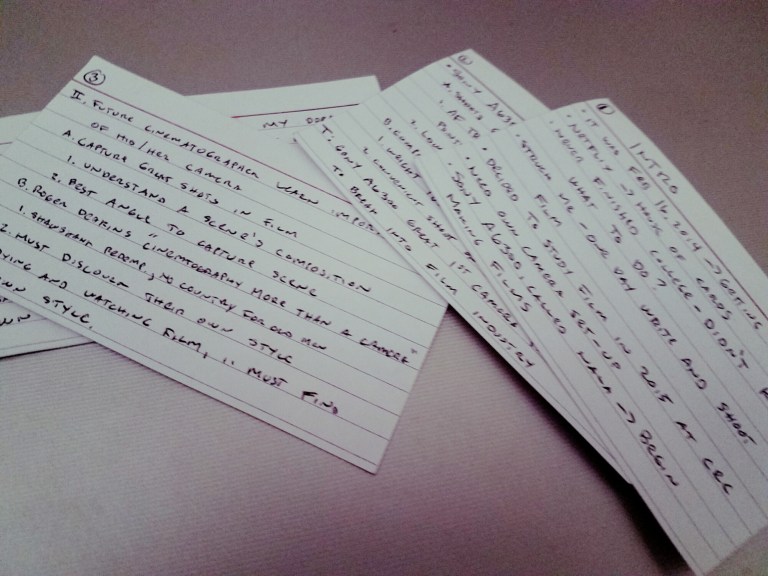 3
II. FUTURE CINEMATOGRAPHER LEARN IMPORT
OF HIS/HER CAMERA
A. CAPTURE GREAT SHOTS IN FILM
1. UNDERSTAND A SCENE'S COMPOSITION
2. BEST ANGLE TO CAPTURE SCENE
B. ROGER DEAKINS "CINEMATOGRAPHY MORE THAN A CAMERA"
1. SHAWSHANK REDEMP., NO COUNTRY FOR OLD MEN
2. MUST DISCOVER THEIR OWN STYLE
YING AND WATCHING FILM, ∴ MUST FIND
WN STYLE.
WN
MY
• SONY A63
A. SHOOTS
1. AF TO
2. LOW
POINT
B. COMPA
1. WEIGHT
2. CONVENIENT SHOOT
I. SONY A6300 GREAT 1ST CAMERA
TO BREAK INTO FILM INDUSTRY
1
INTRO
• IT WAS FEB 16, 2014 → GETTING
• NETFLIX → HOUSE OF CARDS
• NEVER FINISHED COLLEGE - DIDN'T K
WHAT TO DO?
• STRUCK ME - ONE DAY WRITE AND SHOOT
FILM
• DECIDED TO STUDY FILM IN 2015 AT CRC
• NEED OWN CAMERA SET-UP
• SONY A6300 CALLED → BEGIN
MAKING FILMS